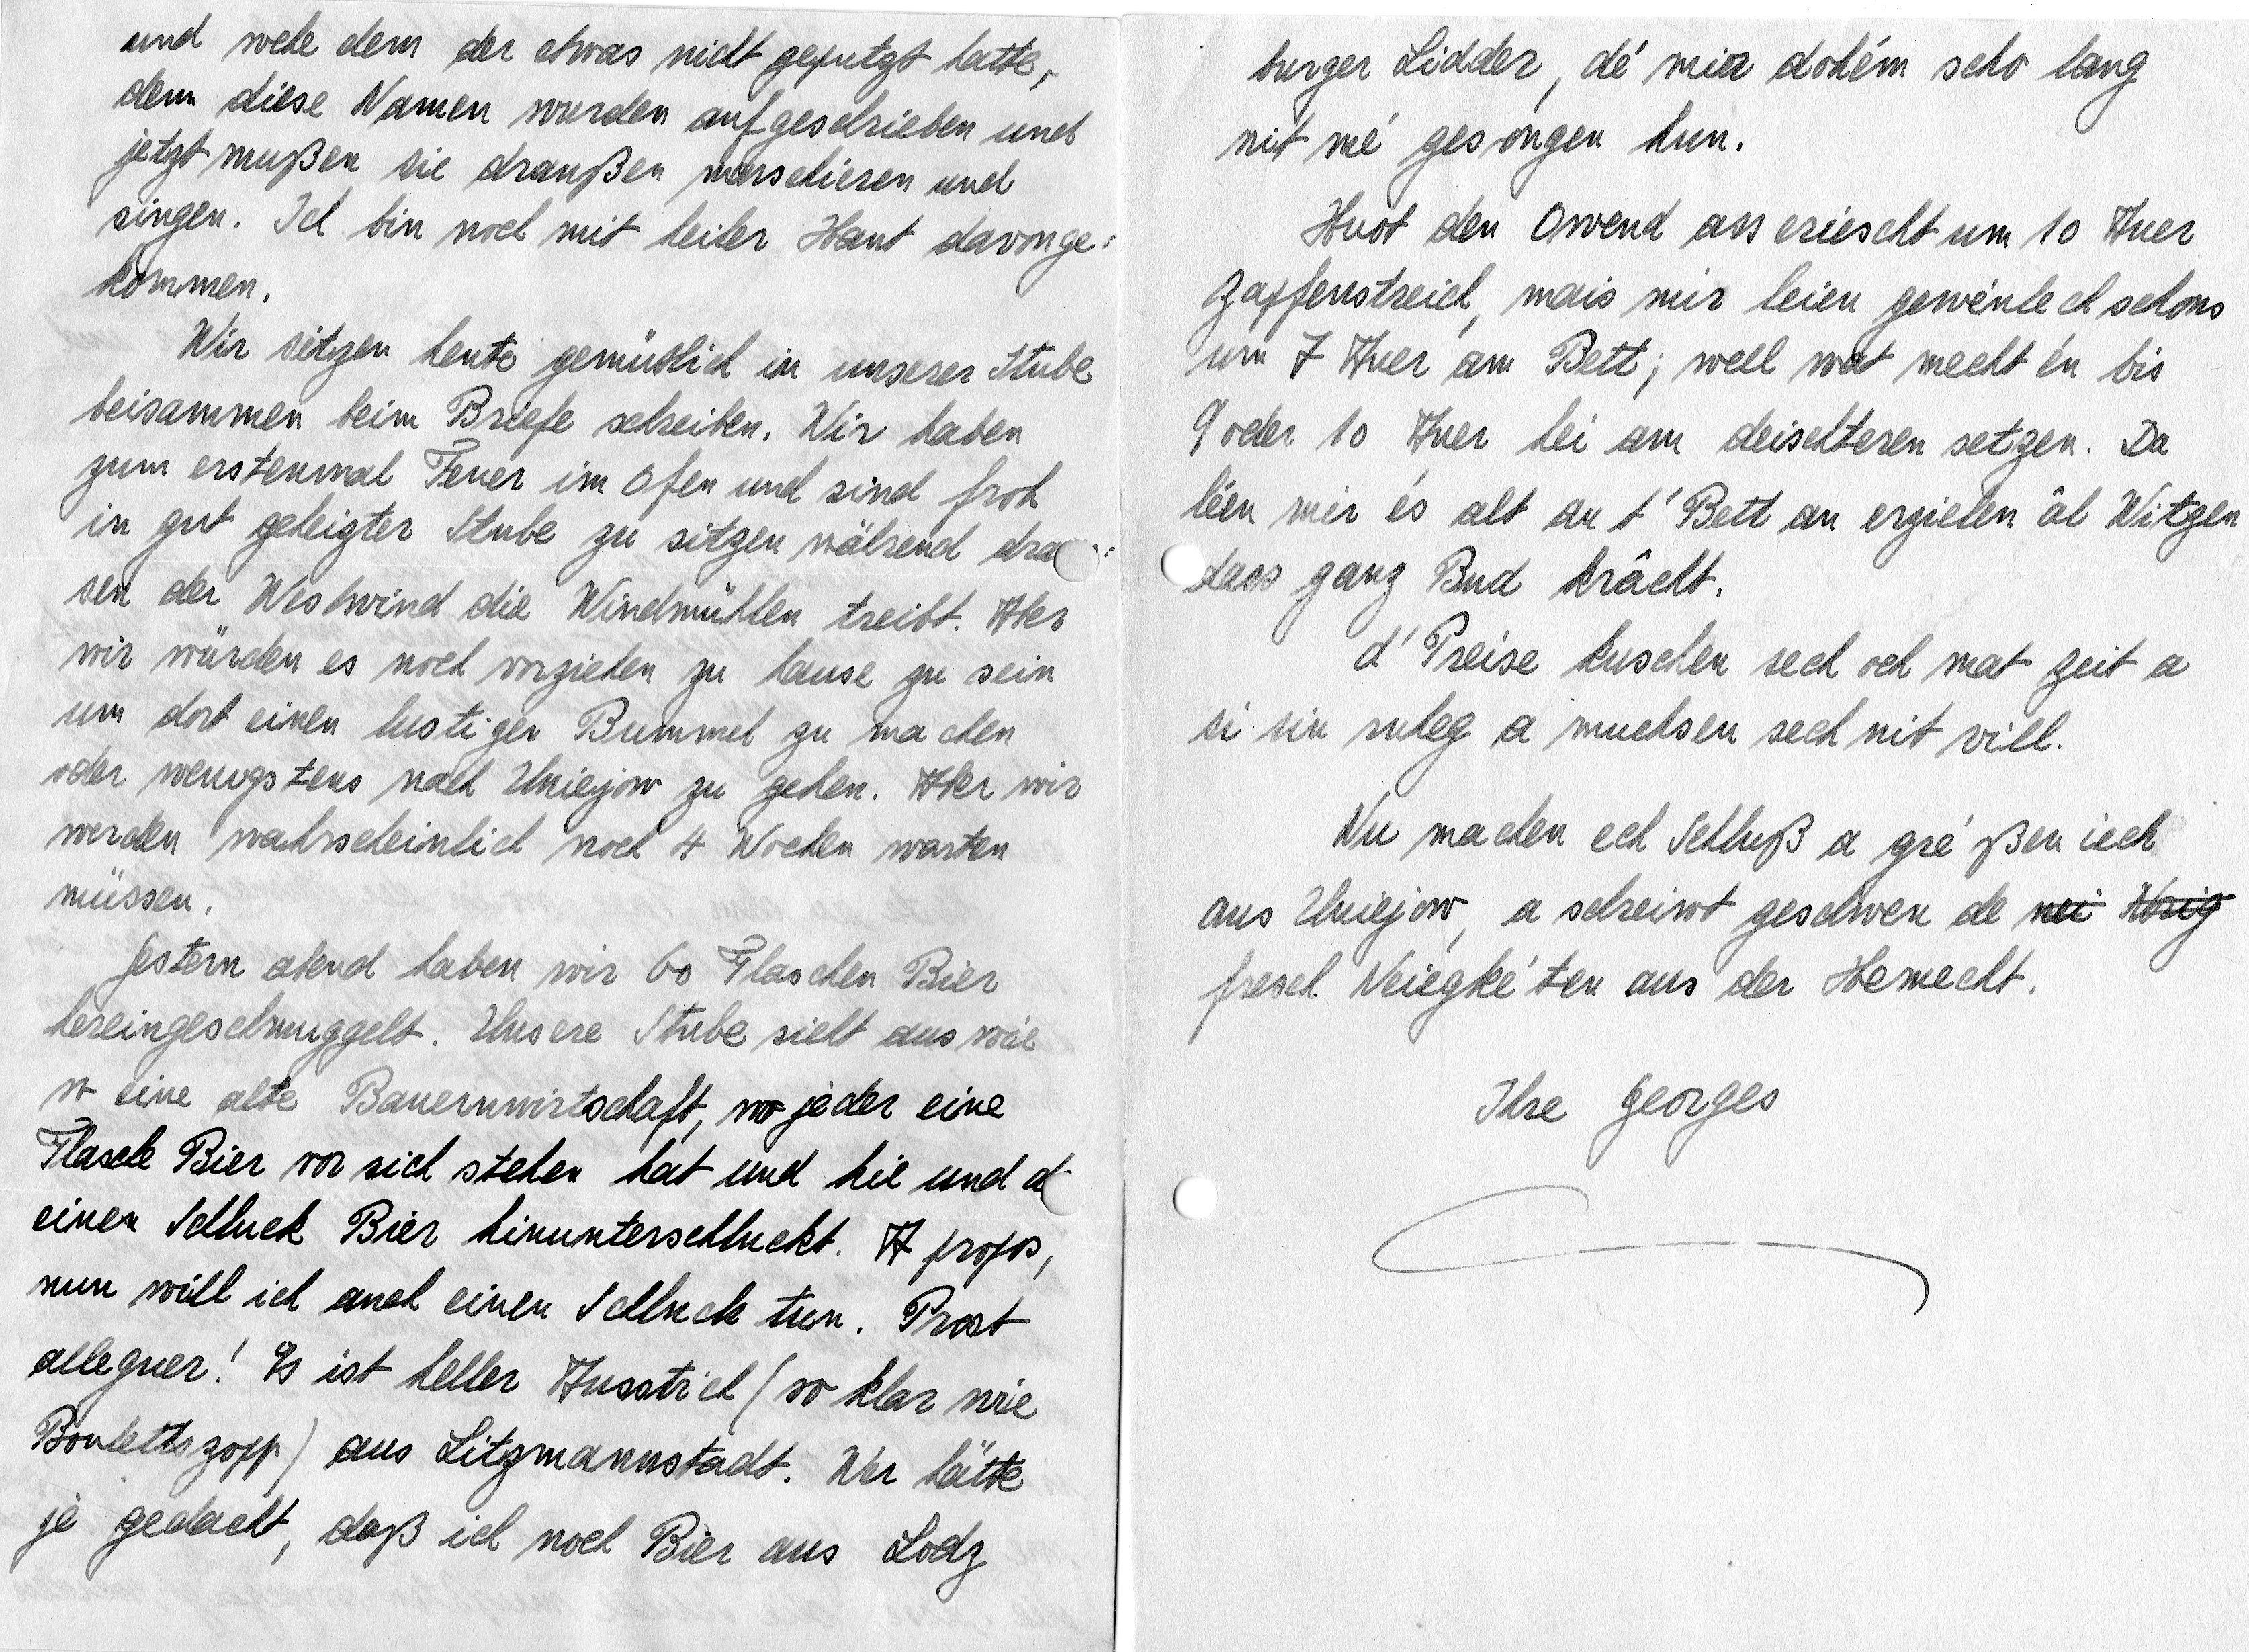 und wehe dem der etwas nicht geputzt hatte,
denn diese Namen wurden aufgeschrieben und
jetzt mußen sie draußen marschieren und
singen. Ich bin noch mit heiler Haut davonge:
kommen.
Wir sitzen heute gemütlich in unserer Stube
beisammen beim Briefe schreiben. Wir haben
zum erstenmal Feuer im Ofen und sind froh
in gut geheizter Stube zu sitzen während drau:
sen der Westwind die Windmühlen treibt. Aber
wir würden es noch vorziehen zu hause zu sein
um dort einen lustigen Bummel zu machen
oder wenigstens nach Uniejow zu gehen. Aber wir
werden wahrscheinlich noch 4 Wochen warten
müssen.
Gestern abend haben wir 60 Flaschen Bier
hereingeschmuggelt. Unsere Stube sieht aus wie
so eine alte Bauernwirtschaft, wo jeder eine
Flasche Bier vor sich stehen hat und hie und d
einen Schluck Bier hinunterschluckt. A propos,
nun will ich auch einen Schluck tun. Prost
alleguer! Es ist heller Ausstich (so klar wie
Boulettszopp) aus Litzmannstadt. Wer hätte
je gedacht, daß ich noch Bier aus Lodz
burger Lidder, dé mir dohém scho lang
nit mé gesongen hun.
Huot den Owend ass eriescht um 10 Auer
Zapfenstreich, mais mir leien gewéinlech schons
um 7 Auer am Bett; well wat mecht én bis
9 oder 10 Auer hei am deischteren setzen. Da
léen mir és alt an t'Bett an erzielen âl Witzen
dass ganz Bud krâcht.
d'Preise kuschen sech och mat zeit a
si sin ruheg a mucksen sech nit vill.
Nu machen ech Schluß a gré ßen iech
aus Uniejow, a schreiwt geschwen de nei
fresch Neiegkéten aus der Hemecht.
Ihre Georges